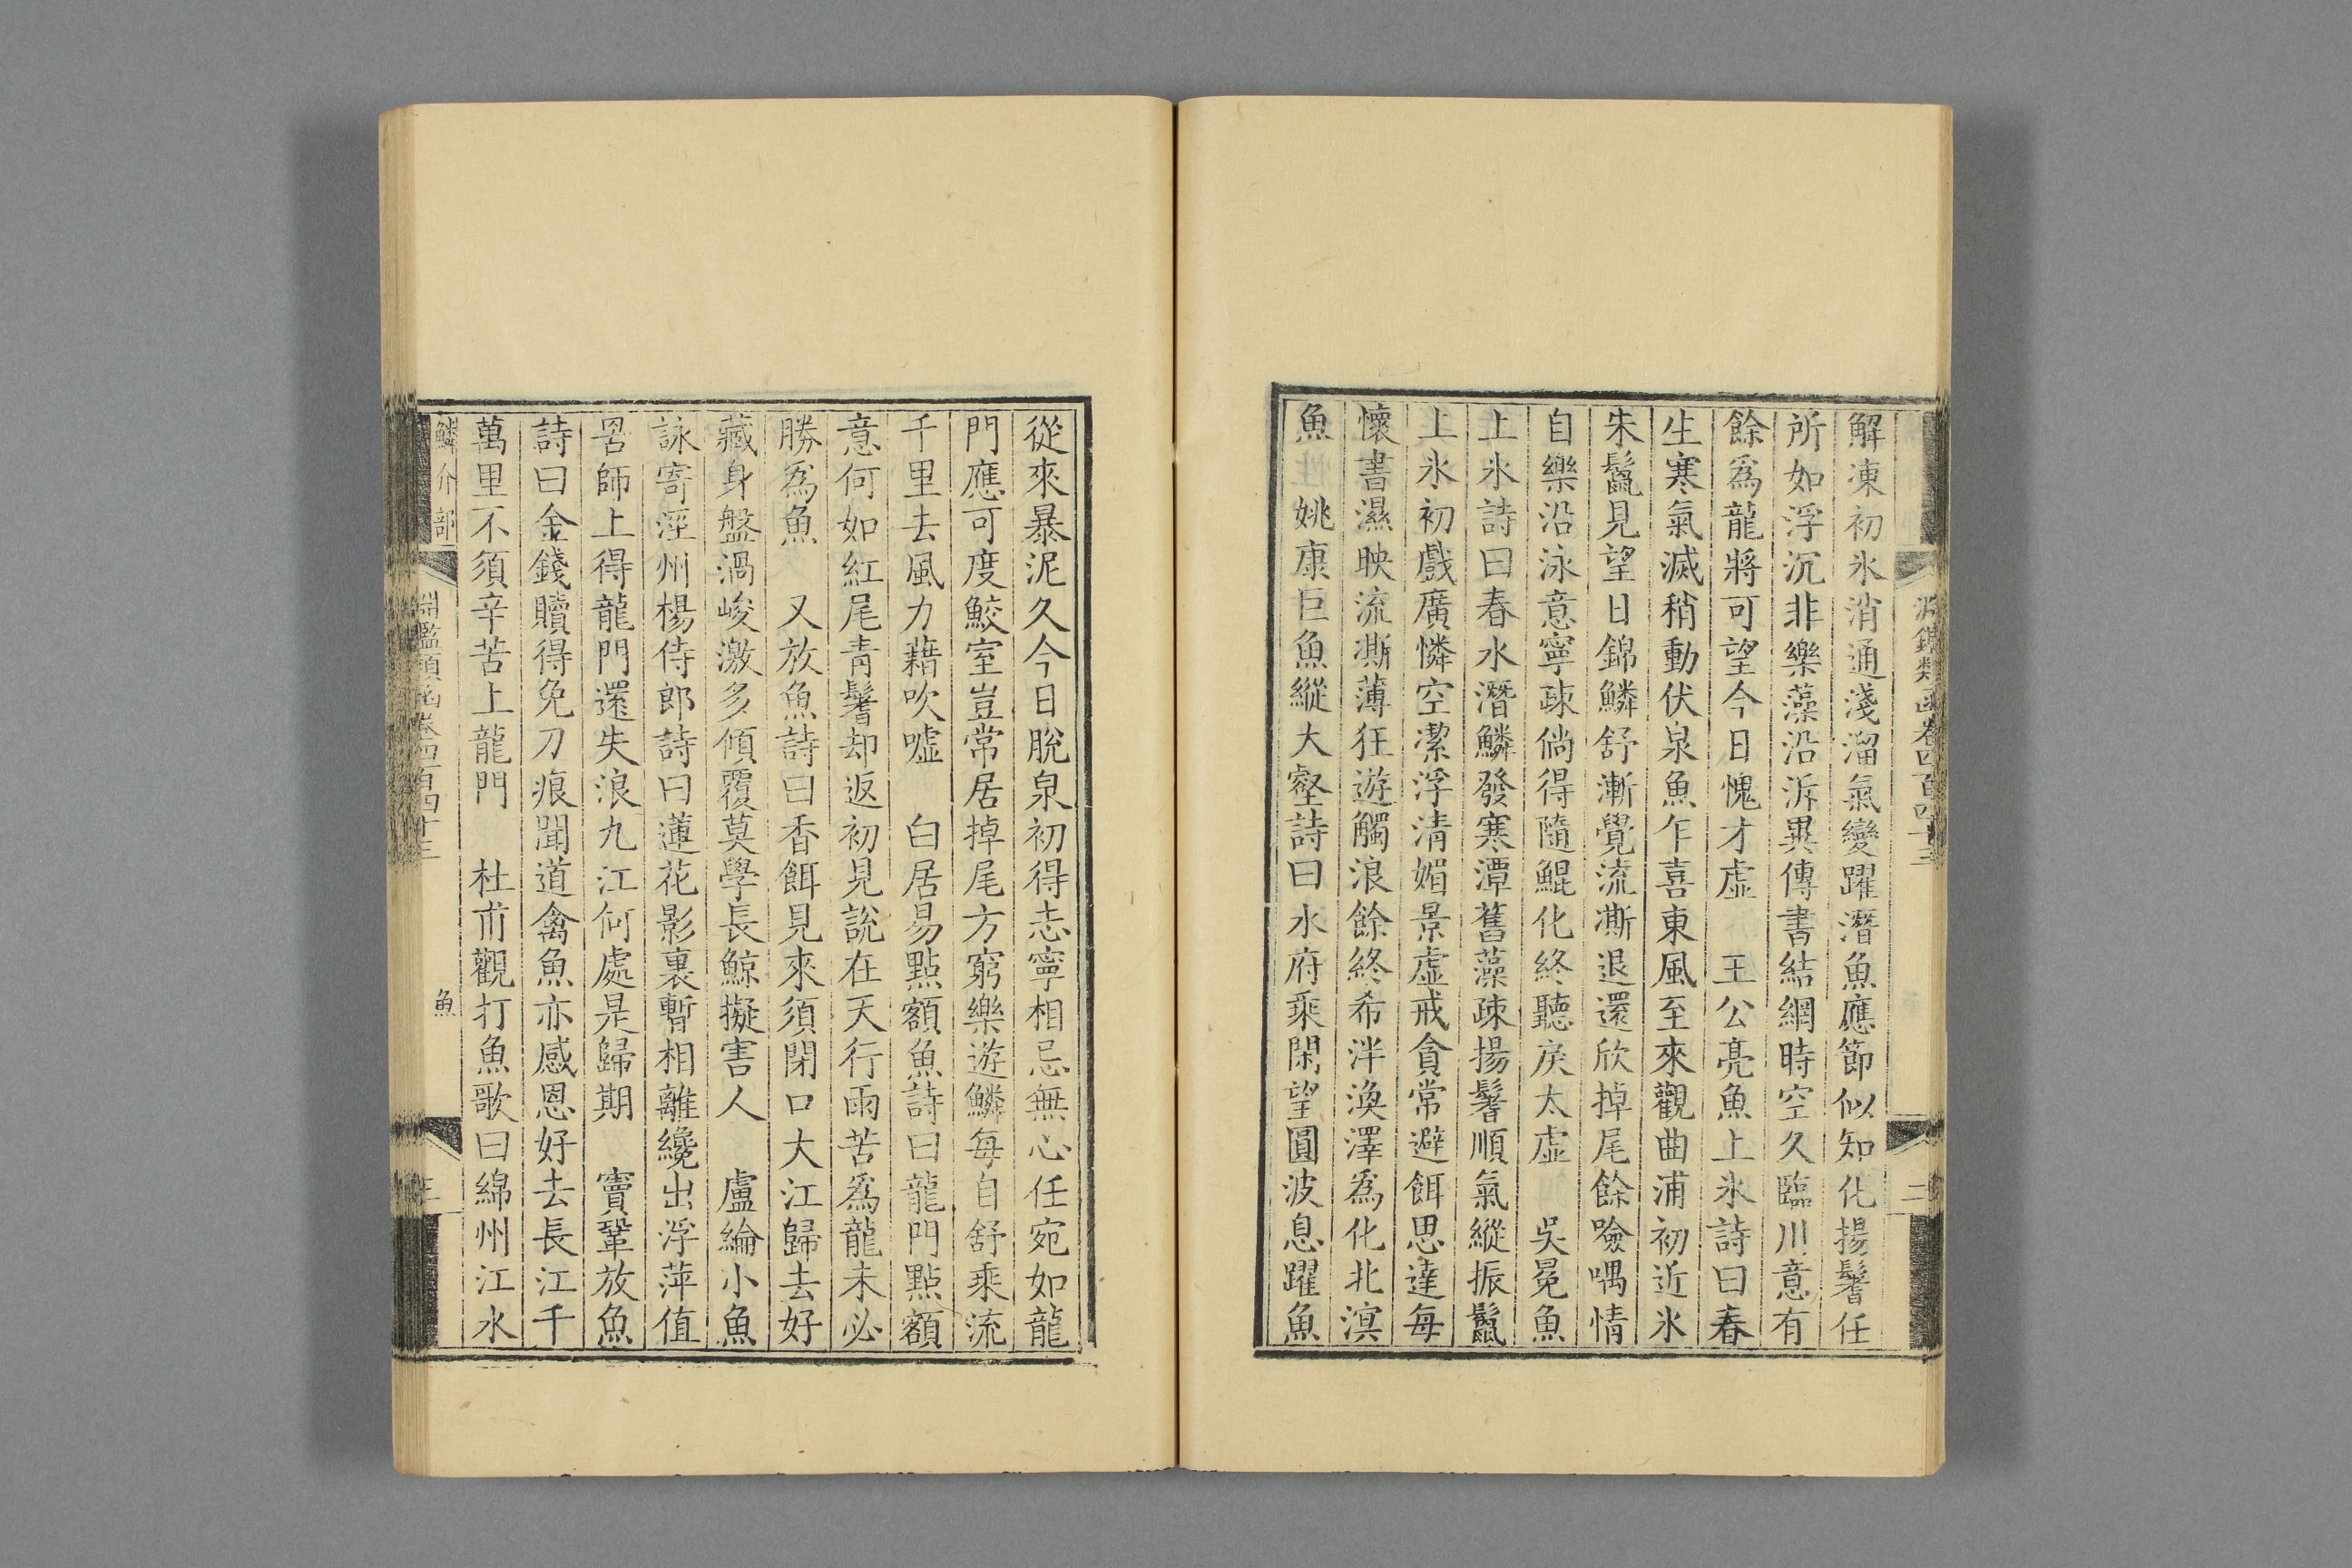 淵鑑類函卷四百四十三
二
解凍初氷消通淺溜氣變躍潛魚應節似知化揚鬐任
所如浮沉非樂藻沿泝異傳書結網時空久臨川意有
餘爲龍將可望今日愧才虛　王公亮魚上氷詩曰春
生寒氣滅稍動伏泉魚乍喜東風至來觀曲浦初近氷
朱鬣見望日錦鱗舒漸覺流澌退還欣掉尾餘噞喁情
自樂沿泳意寧疎倘得隨鯤化終聽戾太虛　吳冕魚
上氷詩曰春水潛鱗發寒潭舊藻疎揚鬐順氣縱振鬣
上氷初戲廣憐空潔浮清媚景虛戒貪常避餌思達每
懷書濕映流澌薄狂遊觸浪餘終希泮渙澤爲化北溟
魚　姚康巨魚縱大壑詩曰水府乘閑望圓波息躍魚
從來暴泥久今日脫泉初得志寧相忌無心任宛如龍
門應可度鮫室豈常居掉尾方窮樂遊鱗每自舒乘流
千里去風力藉吹噓　白居易點額魚詩曰龍門點額
意何如紅尾青鬐却返初見說在天行雨苦爲龍未必
勝爲魚　又放魚詩曰香餌見來須閉口大江歸去好
藏身盤渦峻激多傾覆莫學長鯨擬害人　盧綸小魚
詠寄涇州楊侍郎詩曰蓮花影裏暫相離纔出浮萍值
罟師上得龍門還失浪九江何處是歸期　竇鞏放魚
詩曰金錢贖得免刀痕聞道禽魚亦感恩好去長江千
萬里不須辛苦上龍門　杜甫觀打魚歌曰綿州江水
鱗介部
淵鑑類函卷四百四十三
魚
三